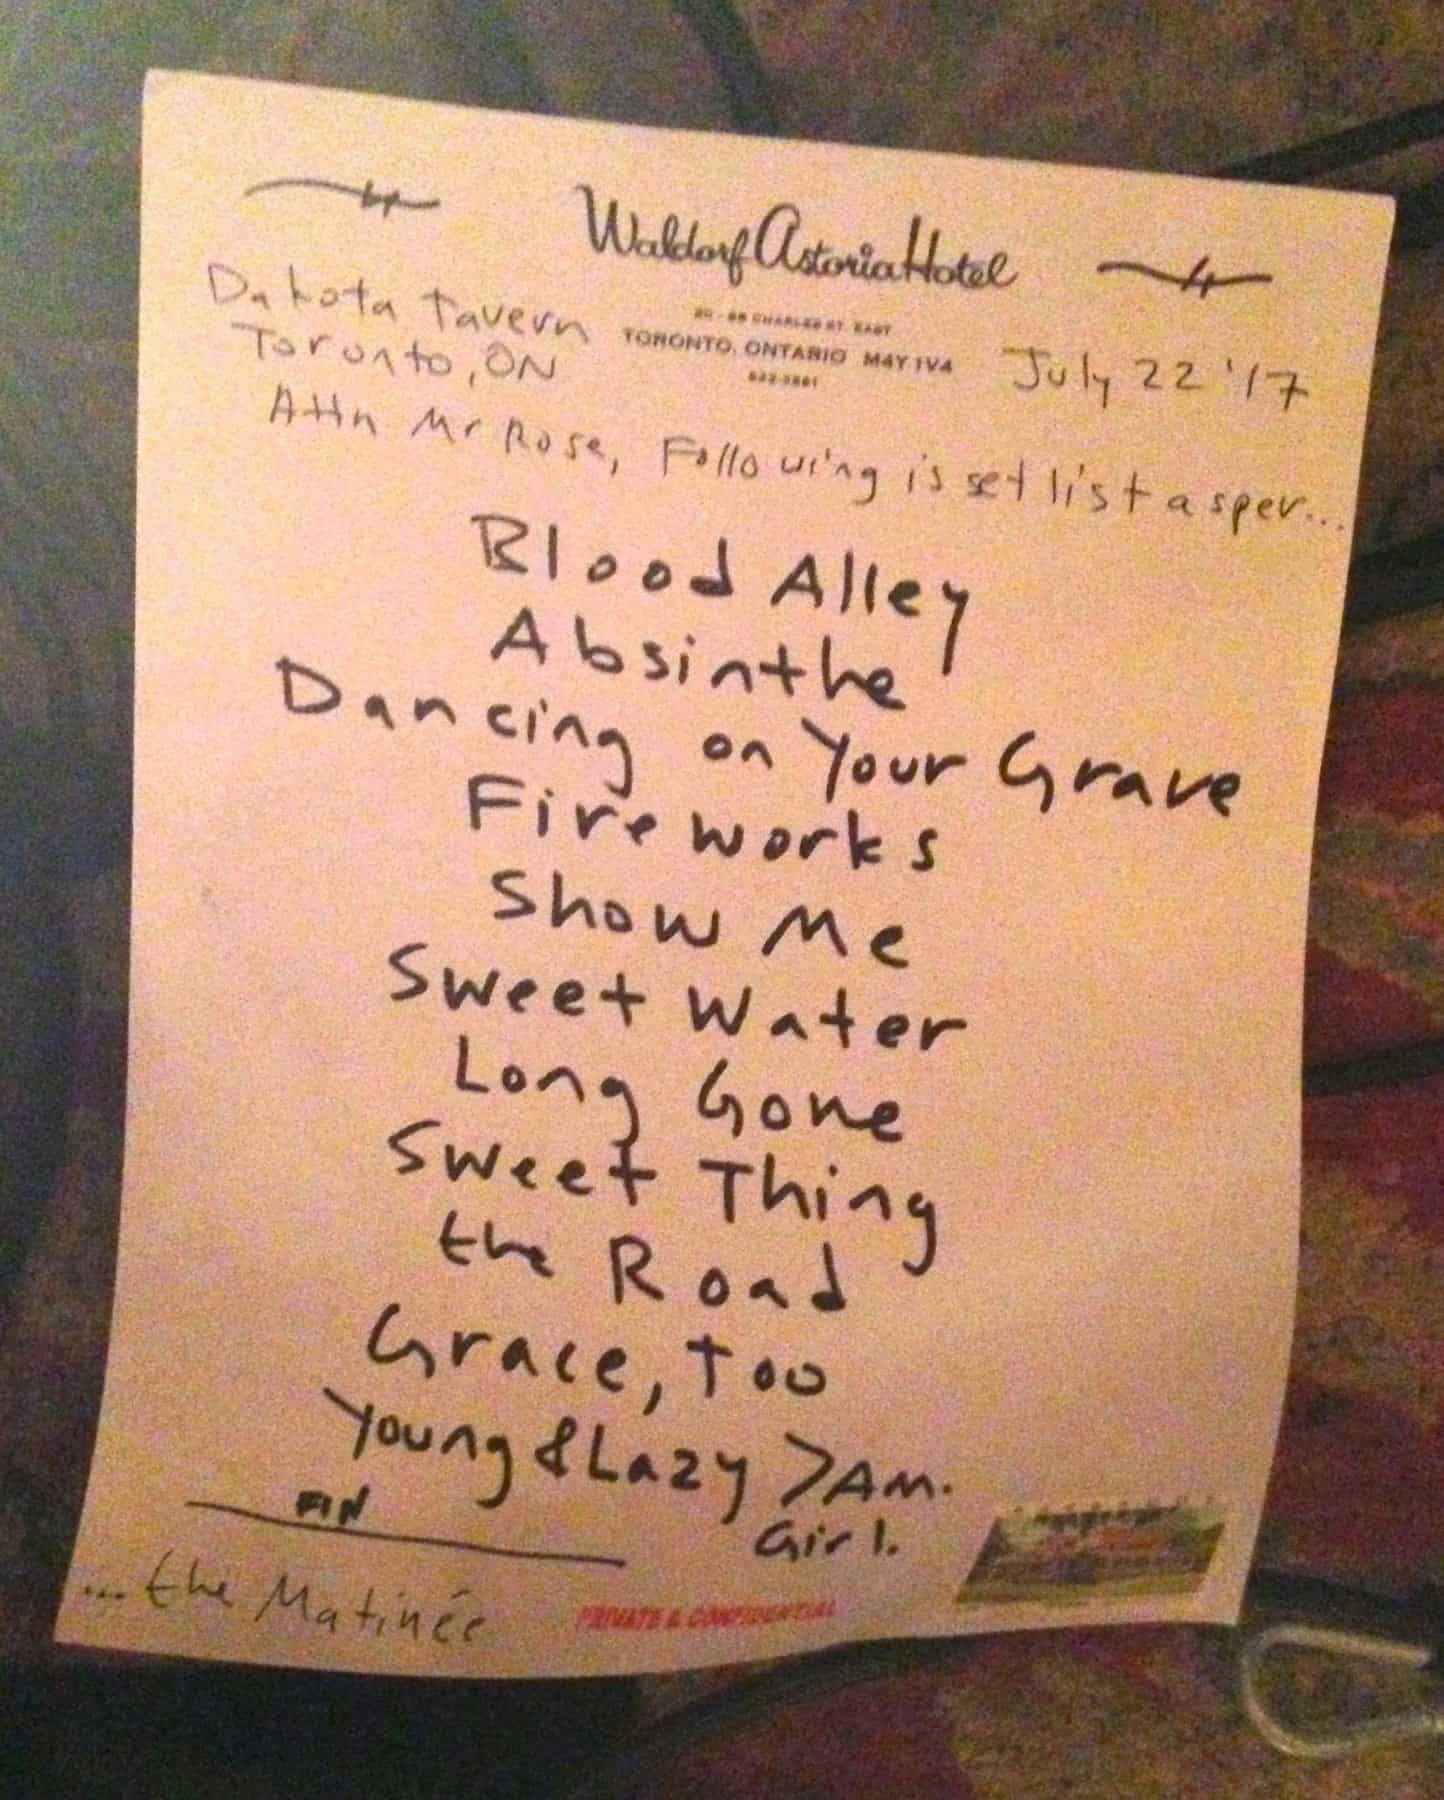 Waldorf Astoria Hotel
CHARLES ST. EAST
TORONTO, ONTARIO M4Y 1V4
Dakota Tavern
Toronto, ON
July 22 '17
Attn Mr Rose, Following is set list as per...
Blood Alley
Absinthe
Dancing on Your Grave
Fireworks
Show Me
Sweet Water
Long Gone
Sweet Thing
the Road
Grace, Too
Young & Lazy > Am.
Girl.
FIN
... the Matinée
PRIVATE & CONFIDENTIAL